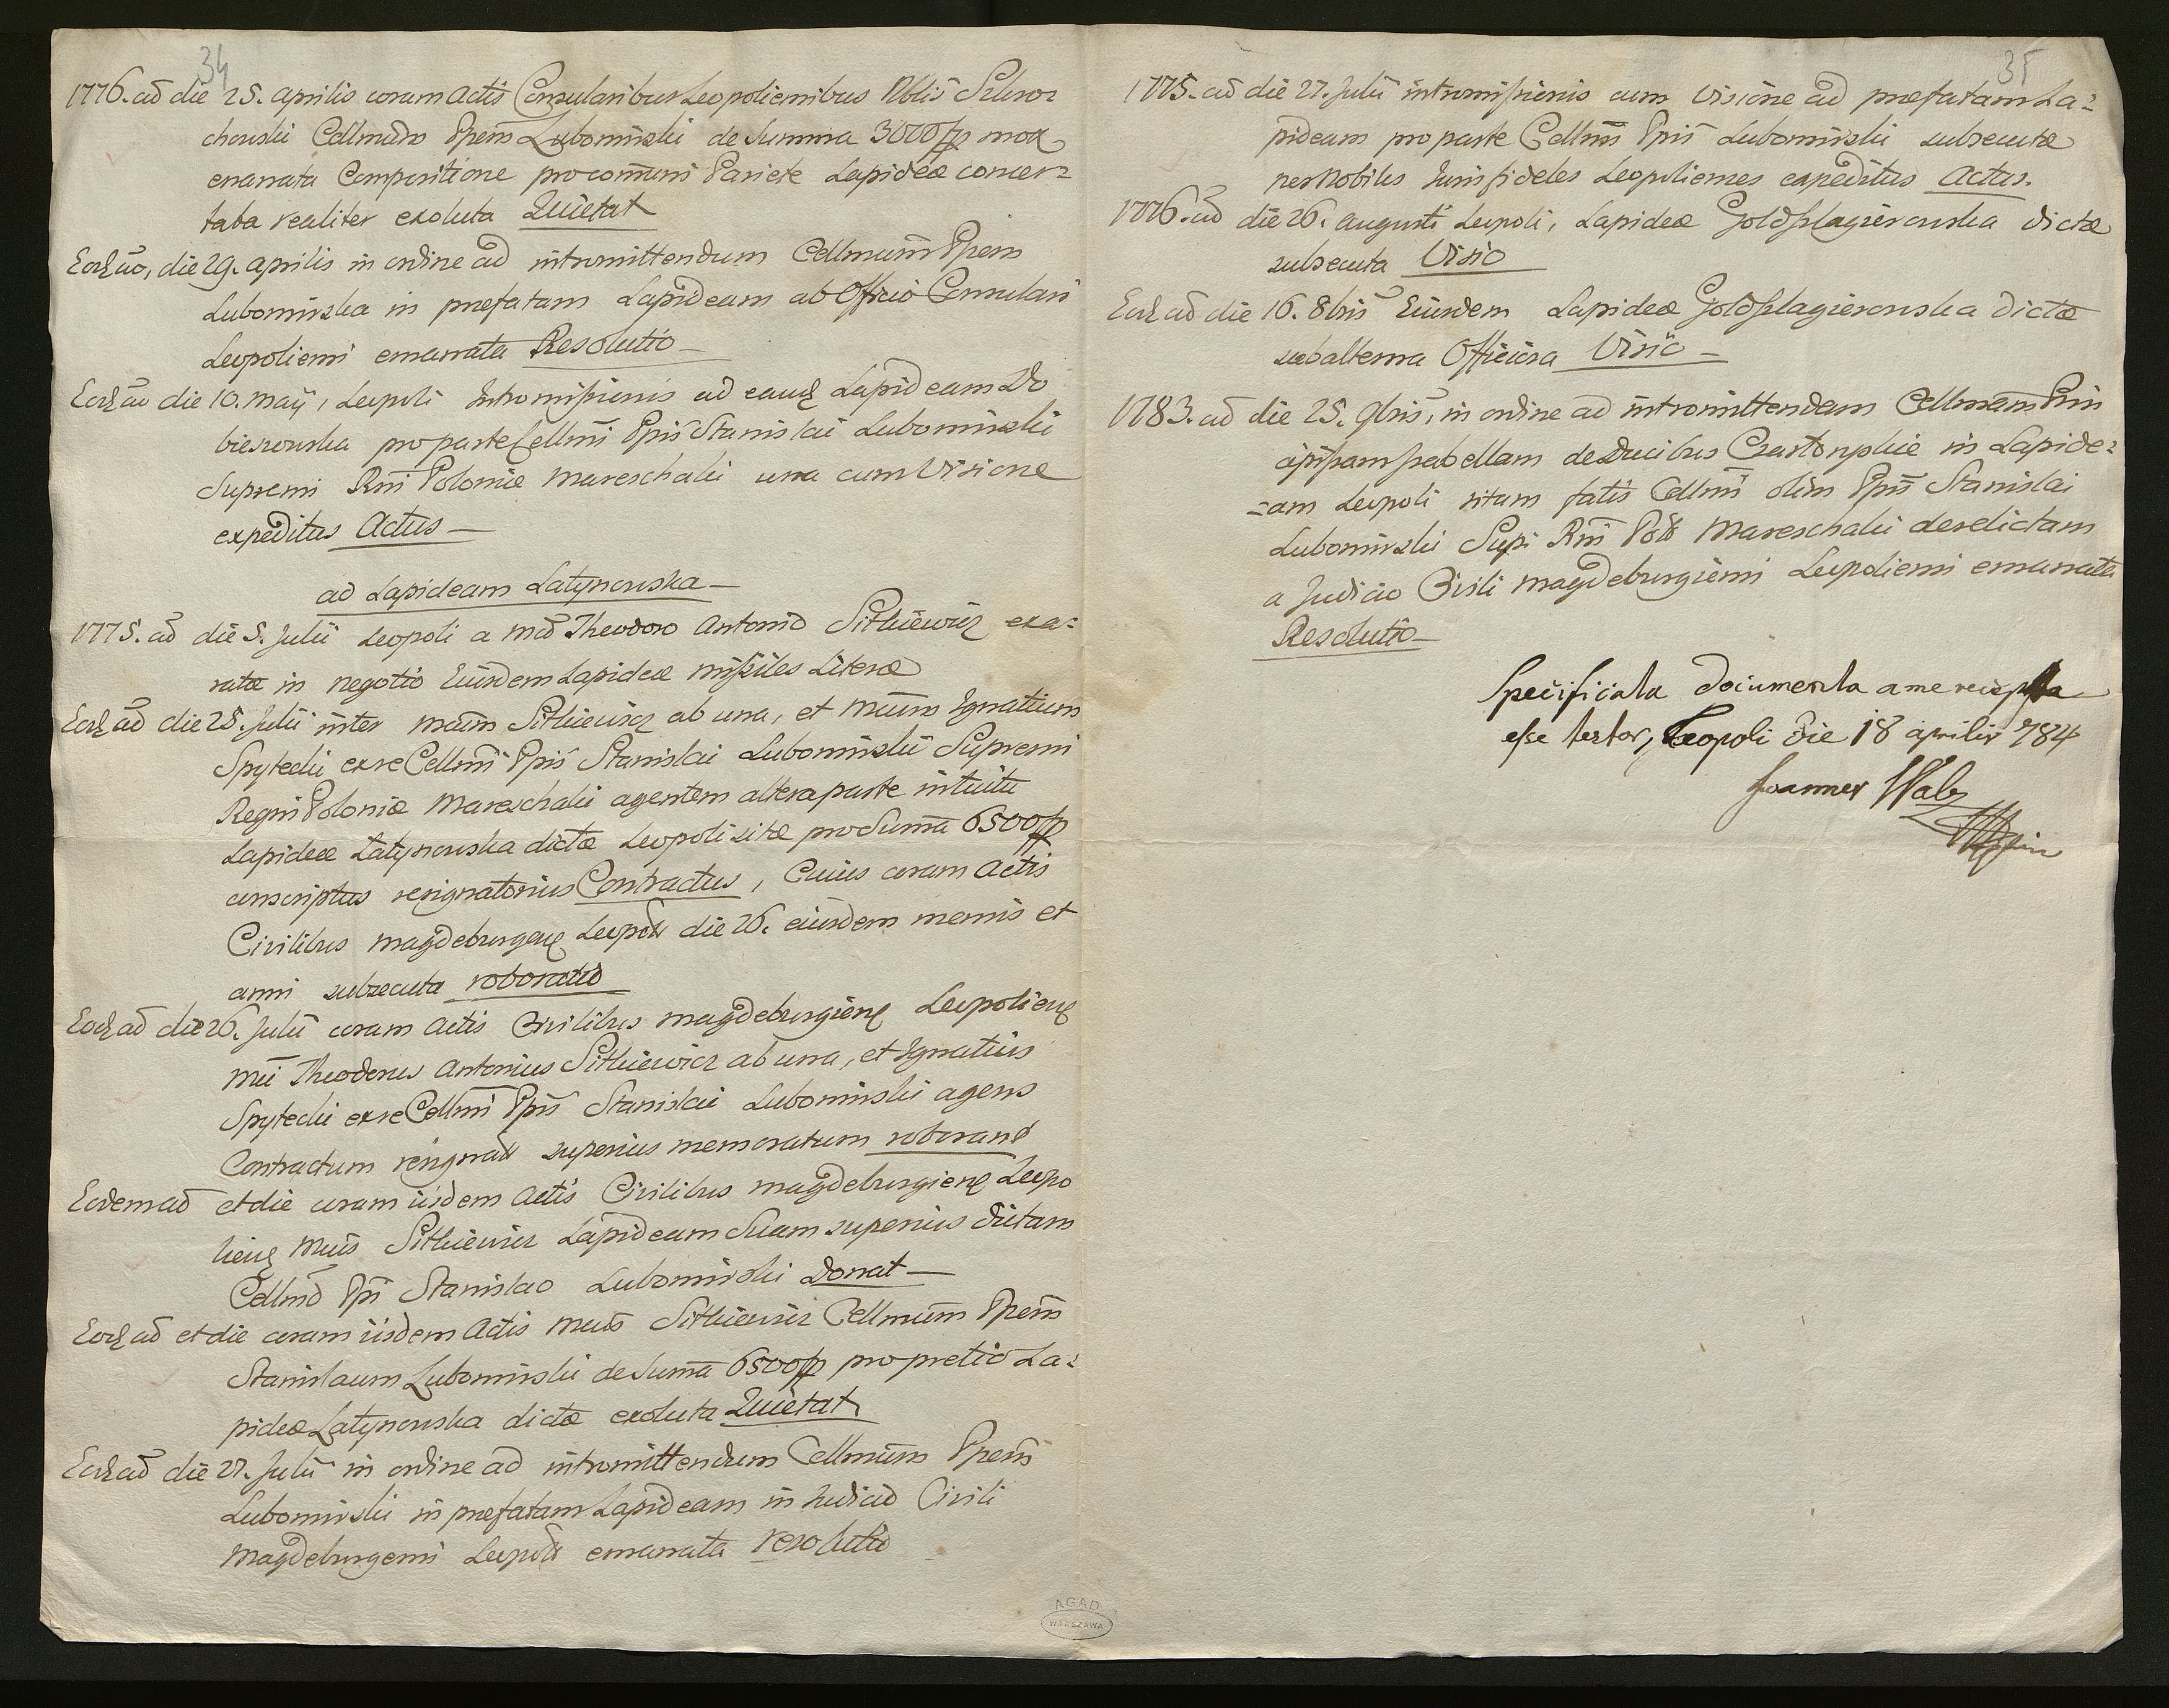 34
1776. ad die 25. Aprilis coram Actis Consularibus Leopoliensibus Nblis
chowski Cellmum Ppem Lubomirski de Summa 3000 fp mox
enarrata Compositione pro comuni Pariete Lapideæ concer=
taba realiter exoluta Quietat
Eod ao, die 29. Aprilis in ordine ad intromittendum Cellmum Ppem
Lubomirski in præfatam Lapideam ab Officio Consulari
Leopoliensi emanata Resolutio
Eod ao die 10. Maÿ, Leopoli Intromissionis ad eand Lapideam Do
bieszowska pro parte Cellmi Ppis Stanislai Lubomirski
Supremi Rni Poloniæ Mareschalci una cum Visione
expeditus Actus
ad Lapideam Latynowska
1775. ad die 5. Julii Leopoli a Mco Theodoro Antonio Sitkiewicz exa=
ratæ in negotio Eiusdem Lapideæ missiles Literæ
Eod ad die 25. Julii inter Mcum Sitkiewicz ab una, et Mcum Ignatium
Spytecki ex re Cellmi Ppis Stanislai Lubomirskii Supremi
Regni Poloniæ Mareschalci agentem altera parte intuitu
Lapideæ Latynowska dictæ Leopoli sitæ pro Suma 6500 fp
conscriptus resignatorius Contractus, Cuius coram Actis
Civilibus Magdeburgens Leopol die 26. eiusdem mensis et
anni subsecuta roboratio
Eod ad die 26. Julii coram Actis Civilibus Magdeburgiens Leopoliens
Mci Theodorus Antonius Sitkiewicz ab una, et Ignatius
Spytecki ex re Cellmi Ppis Stanislai Lubomirski agens
Contractum resignat superius memoratum roborant
Eodem ad et die coram iisdem Actis Civilibus Magdeburgiens Leopo
liens Mcus Sitkiewicz Lapideam Suam superius dictam
Cellmo Ppi Stanislao Lubomirski Donat
Eod ad et die coram iisdem Actis Mcus Sitkiewicz Cellmum Ppem
Stanislaum Lubomirski de Suma 6500 fp pro pretio La=
pideæ Latynowska dictæ exoluta Quietat
Eod ad die 27. Julii in ordine ad intromittendum Cellmum Ppem
Lubomirski in præfatam Lapideam in Judicio Civili
Magdeburgensi Leopol emanata resolutio
35
1775. ad die 27. Julii intromissionis cum Visione ad præfatam La=
pideam pro parte Cellmi Ppis Lubomirski subsecutæ
per Nobiles Jurisfideles Leopolienses expeditus Actus.
1776. ad die 26. Augusti Leopoli, Lapideæ Goldszlagierowska dictæ
subsecuta Visio
Eod ad die 16. 8bris Eiusdem Lapideæ Goldszlagierowska dictæ
subalterna Officiosa Visio
1783. ad die 25. 9bris, in ordine ad intromittendam Cellmam Prin
cipissam Isabellam de Ducibus Czartoryskie in Lapide=
=am Leopoli sitam fatis Cellmi olim Ppis Stanislai
Lubomirski Supi Rni Pol Mareschalci derelictam
a Judicio Civili Magdeburgiensi Leopoliensi emanata
Resolutio
Specificata documenta a me recepta
esse testor, Leopoli die 18 Aprilis 784
Joannes Walz
AGAD
WARSZAWA